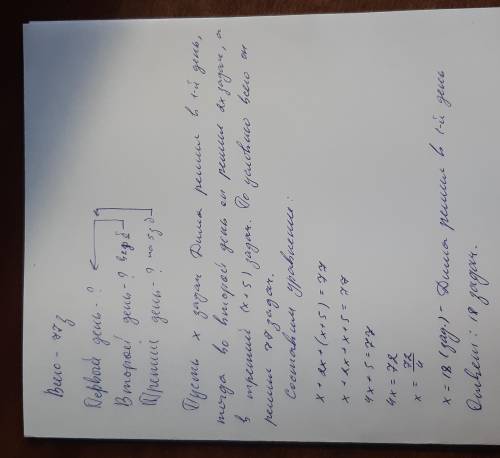 Всего - 77 з
Первый день - ?
Второй день - ? в 2 р б
Третий день - ? на 5 з б
Пусть x задач Дима решил в 1-й день,
тогда во второй день он решил 2x задач, а
в третий (x+5) задач. По условию всего он
решил 77 задач.
Составим уравнение:
x + 2x + (x+5) = 77
x + 2x + x + 5 = 77
4x + 5 = 77
4x = 72
x = 72/4
x = 18 (зад.) - Дима решил в 1-й день
Ответ: 18 задач.